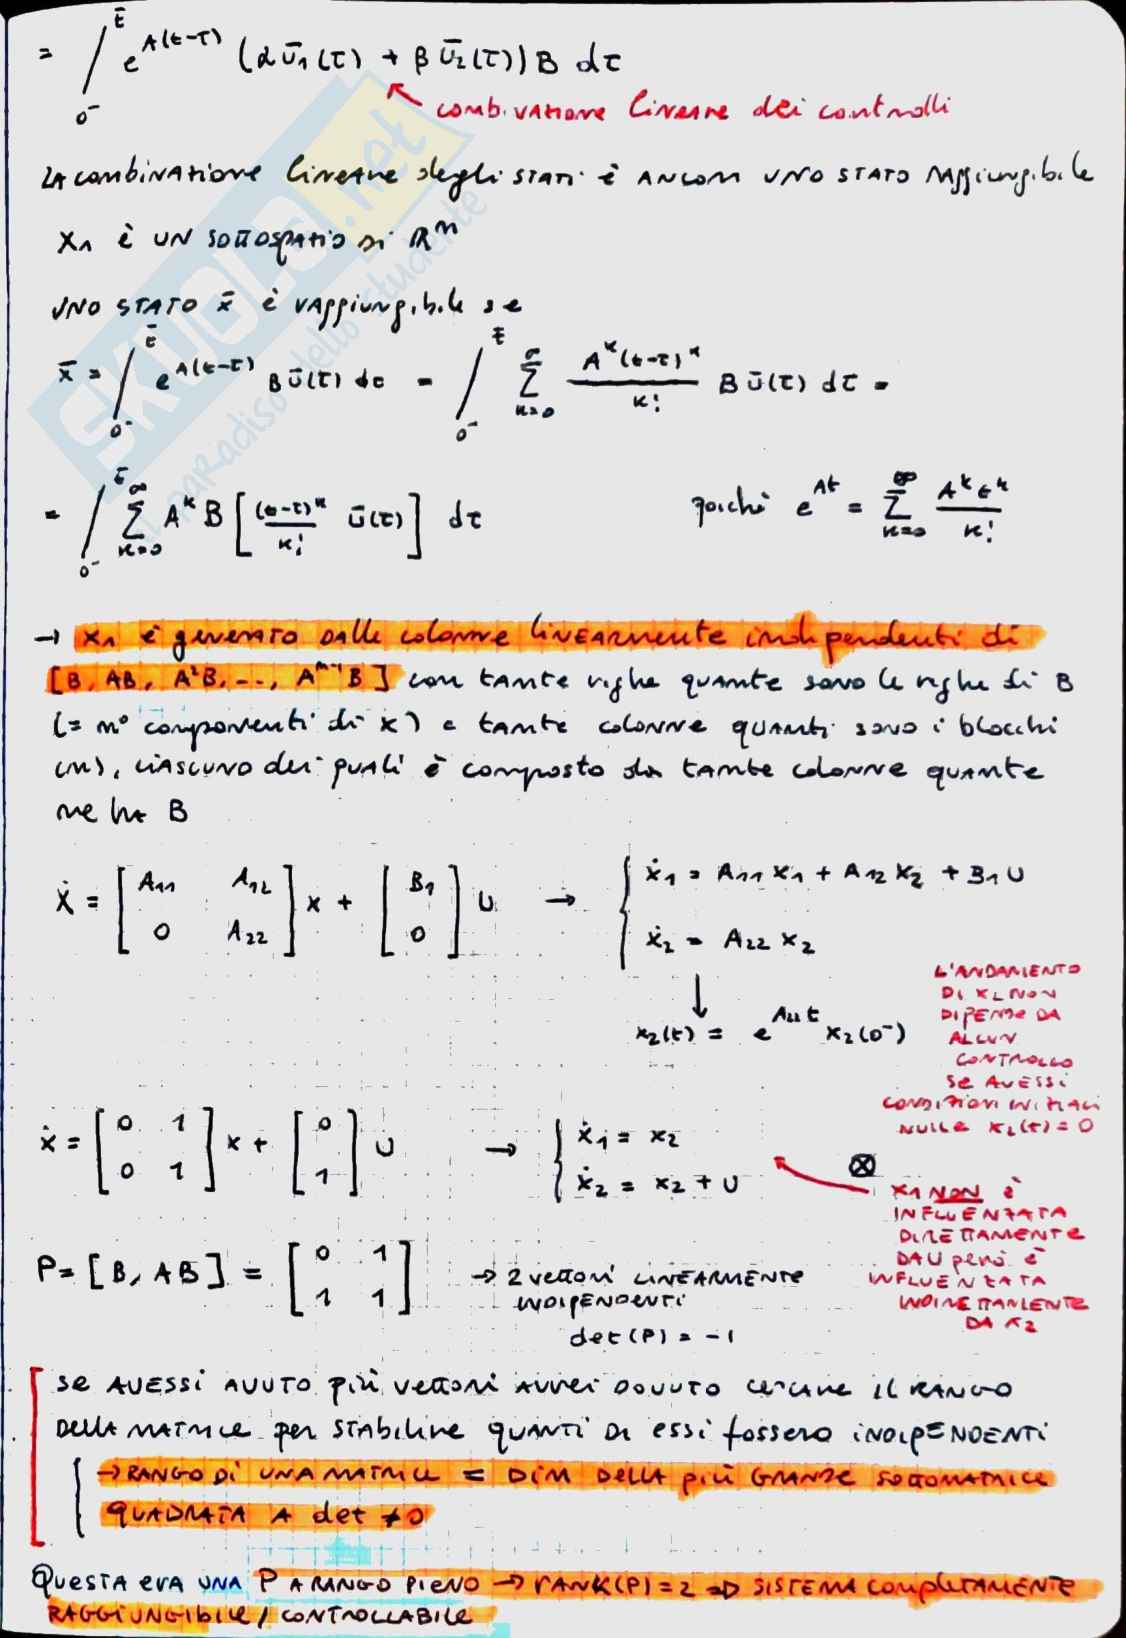 = ∫_{0⁻}^{t̄} e^{A(t-τ)} (α ū₁(τ) + β ū₂(τ)) B dτ
combinazione lineare dei controlli
LA combinazione lineare degli stati è ANCORA UNO STATO RAggiungibile
X₁ è UN SOTTOSPAZIO di ℝⁿ
UNO STATO x̄ è raggiungibile se
x̄ = ∫_{0⁻}^{t̄} e^{A(t-τ)} B ū(τ) dτ = ∫_{0⁻}^{t̄} Σ_{k=0}^{∞} A^k (t-τ)^k / k! B ū(τ) dτ =
= ∫_{0⁻}^{t̄} Σ_{k=0}^{∞} A^k B [ (t-τ)^k / k! ū(τ) ] dτ poiché e^{At} = Σ_{k=0}^{∞} A^k t^k / k!
→ X₁ è generato dalle colonne linearmente indipendenti di
[B, AB, A²B, ..., A^{n-1}B] con tante righe quante sono le righe di B
(= n° componenti di x) e tante colonne quanti sono i blocchi
(n), ciascuno dei quali è composto da tante colonne quante
ne ha B
ẋ = [A₁₁ A₁₂; 0 A₂₂] x + [B₁; 0] u → { ẋ₁ = A₁₁ x₁ + A₁₂ x₂ + B₁ u
ẋ₂ = A₂₂ x₂
↓
x₂(t) = e^{A₂₂t} x₂(0⁻)
L'ANDAMENTO
DI x₂ NON
DIPENDE DA
ALCUN
CONTROLLO
SE AVESSI
CONDIZIONI INIZIALI
NULLE x₂(t) = 0
ẋ = [0 1; 0 1] x + [0; 1] u → { ẋ₁ = x₂
ẋ₂ = x₂ + u
⊗
x₁ NON è
INFLUENZATA
DIRETTAMENTE
DA U però è
INFLUENZATA
INDIRETTAMENTE
DA x₂
P = [B, AB] = [0 1; 1 1] → 2 vettori LINEARMENTE
INDIPENDENTI
det(P) = -1
SE AVESSI AVUTO più vettori AVREI DOVUTO cercare IL RANGO
DELLA MATRICE per STABILIRE QUANTI DI essi fossero INDIPENDENTI
→ RANGO DI UNA MATRICE = DIM DELLA più GRANDE SOTTOMATRICE
QUADRATA A det ≠ 0
Questa era UNA P A RANGO PIENO → rank(P) = 2 ⇒ SISTEMA completamente
RAGGIUNGIBILE / CONTROLLABILE
SKUOLA.net
il paradiso dello studente